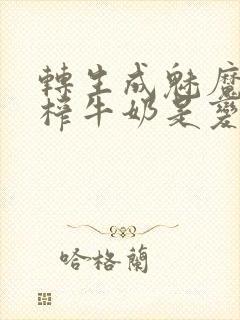 轉生成魅魔
榨牛奶是變
哈格蘭